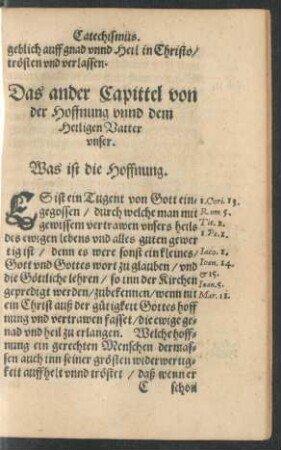 Catechismus.
geblich auff gnad vnnd Heil in Christo/
trösten vnd verlassen.
Das ander Capittel von
der Hoffnung vnnd dem
Heiligen Vatter
vnser.
Was ist die Hoffnung.
ES ist ein Tugent von Gott ein-
gegossen / durch welche man mit
gewissem vertrawen vnsers heils
des ewigen lebens vnd alles guten gewer
tig ist / denn es were sonst ein kleines /
Gott vnd Gottes wort zu glauben / vnd
die Göttliche lehren / so inn der Kirchen
gepredigt werden / zubekennen / wenn nit
ein Christ auß der gütigkeit Gottes hoff
nung vnd vertrawen fasset / die ewige ge-
nad vnd heil zu erlangen. Welche hoff-
nung ein gerechten Menschen dermas-
sen auch inn seiner grösten widerwertig-
keit auffhelt vnnd tröstet / daß wenn er
C schon
1.Cori.13.
Rom 5.
Tit. 2.
1 Pe.1.
Iaco.2.
Ioan.14.
&15.
Ioan.5.
Mar.11.